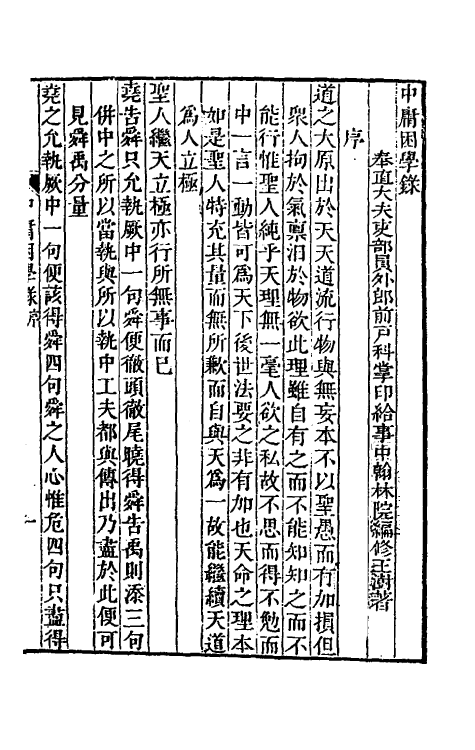 中庸困學錄
奉直大夫吏部員外郎前戶科掌印給事中翰林院編修王澍著
序
道之大原出於天天道流行物與無妄本不以聖愚而有加損但
衆人拘於氣稟汨於物欲此理雖自有之而不能知知之而不
能行惟聖人純乎天理無一毫人欲之私故不思而得不勉而
中一言一動皆可為天下後世法要之非有加也天命之理本
如是聖人特充其量而無所歉而自與天爲一故能繼續天道
爲人立極
聖人繼天立極亦行所無事而已
堯告舜只允執厥中一句舜便徹頭徹尾曉得舜告禹則添三句
併中之所以當執與所以執中工夫都與傳出乃盡於此便可
見舜禹分量
堯之允執厥中一句便該得舜四句舜之人心惟危四句只盡得
中庸困學錄序
一